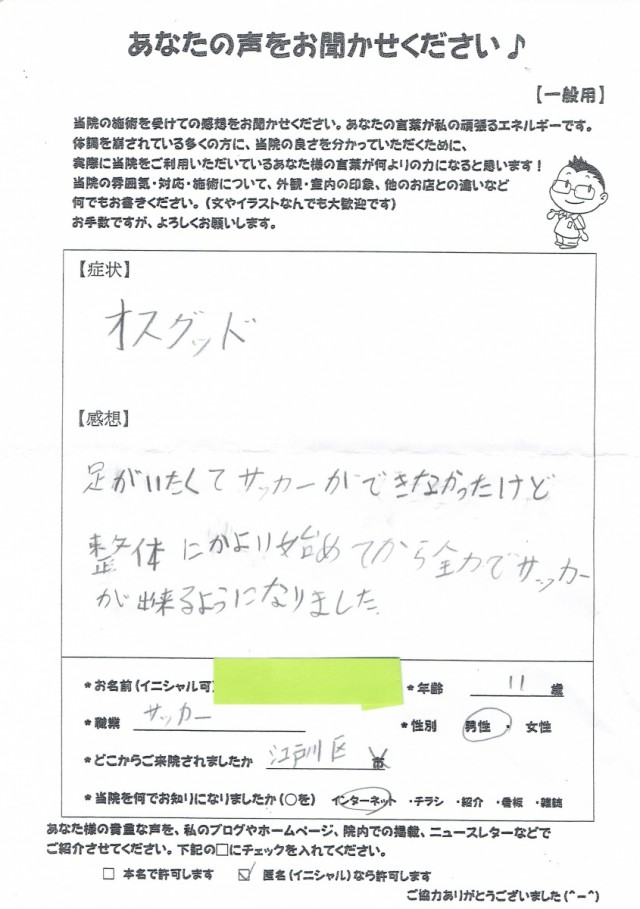 あなたの声をお聞かせください♪
【一般用】
当院の施術を受けての感想をお聞かせください。あなたの言葉が私の頑張るエネルギーです。
体調を崩されている多くの方に、当院の良さを分かっていただくために、
実際に当院をご利用いただいているあなた様の言葉が何よりの力になると思います!
当院の雰囲気・対応・施術について、外観・室内の印象、他のお店との違いなど
何でもお書きください。(文やイラストなんでも大歓迎です)
お手数ですが、よろしくお願いします。
【症状】
オスグッド
【感想】
足がいたくてサッカーができなかったけど
整体にかより始めてから全力でサッカー
が出来るようになりました。
*お名前(イニシャル可)
*年齢 11 歳
*職業 サッカー
*性別 男性・女性
*どこからご来院されましたか 江戸川区 市
*当院を何でお知りになりましたか(○を) インターネット ・チラシ ・紹介 ・看板 ・雑誌
あなた様の貴重な声を、私のブログやホームページ、院内での掲載、ニュースレターなどで
ご紹介させてください。下記の□にチェックを入れてください。
□ 本名で許可します ☑ 匿名(イニシャル)なら許可します
ご協力ありがとうございました(^-^)